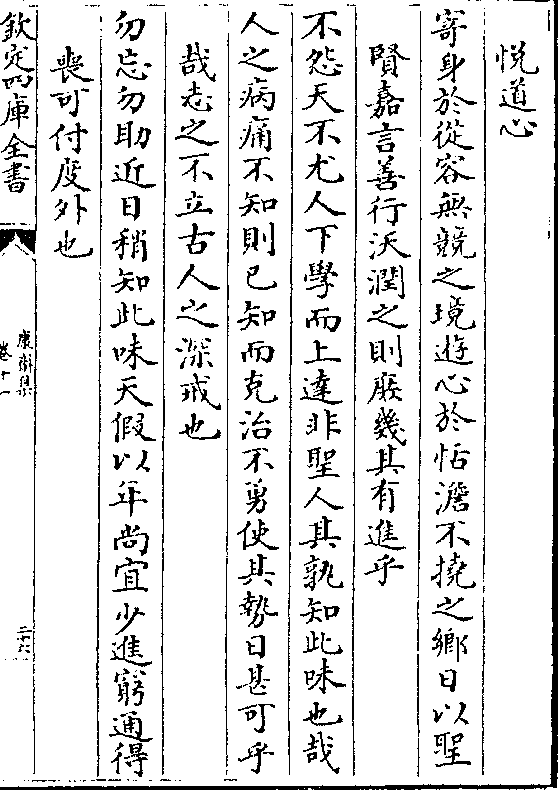 悅道心
寄身於從容無競之境遊心於恬澹不撓之鄉日以聖
賢嘉言善行沃潤之則庶幾其有進乎
不怨天不尤人下學而上達非聖人其孰知此味也哉
人之病痛不知則已知而克治不勇使其勢日甚可乎
哉志之不立古人之深戒也
勿忘勿助近日稍知此味天假以年尚宜少進窮通得
喪可付度外也
欽定四庫全書
康齋集
卷十一
二十六